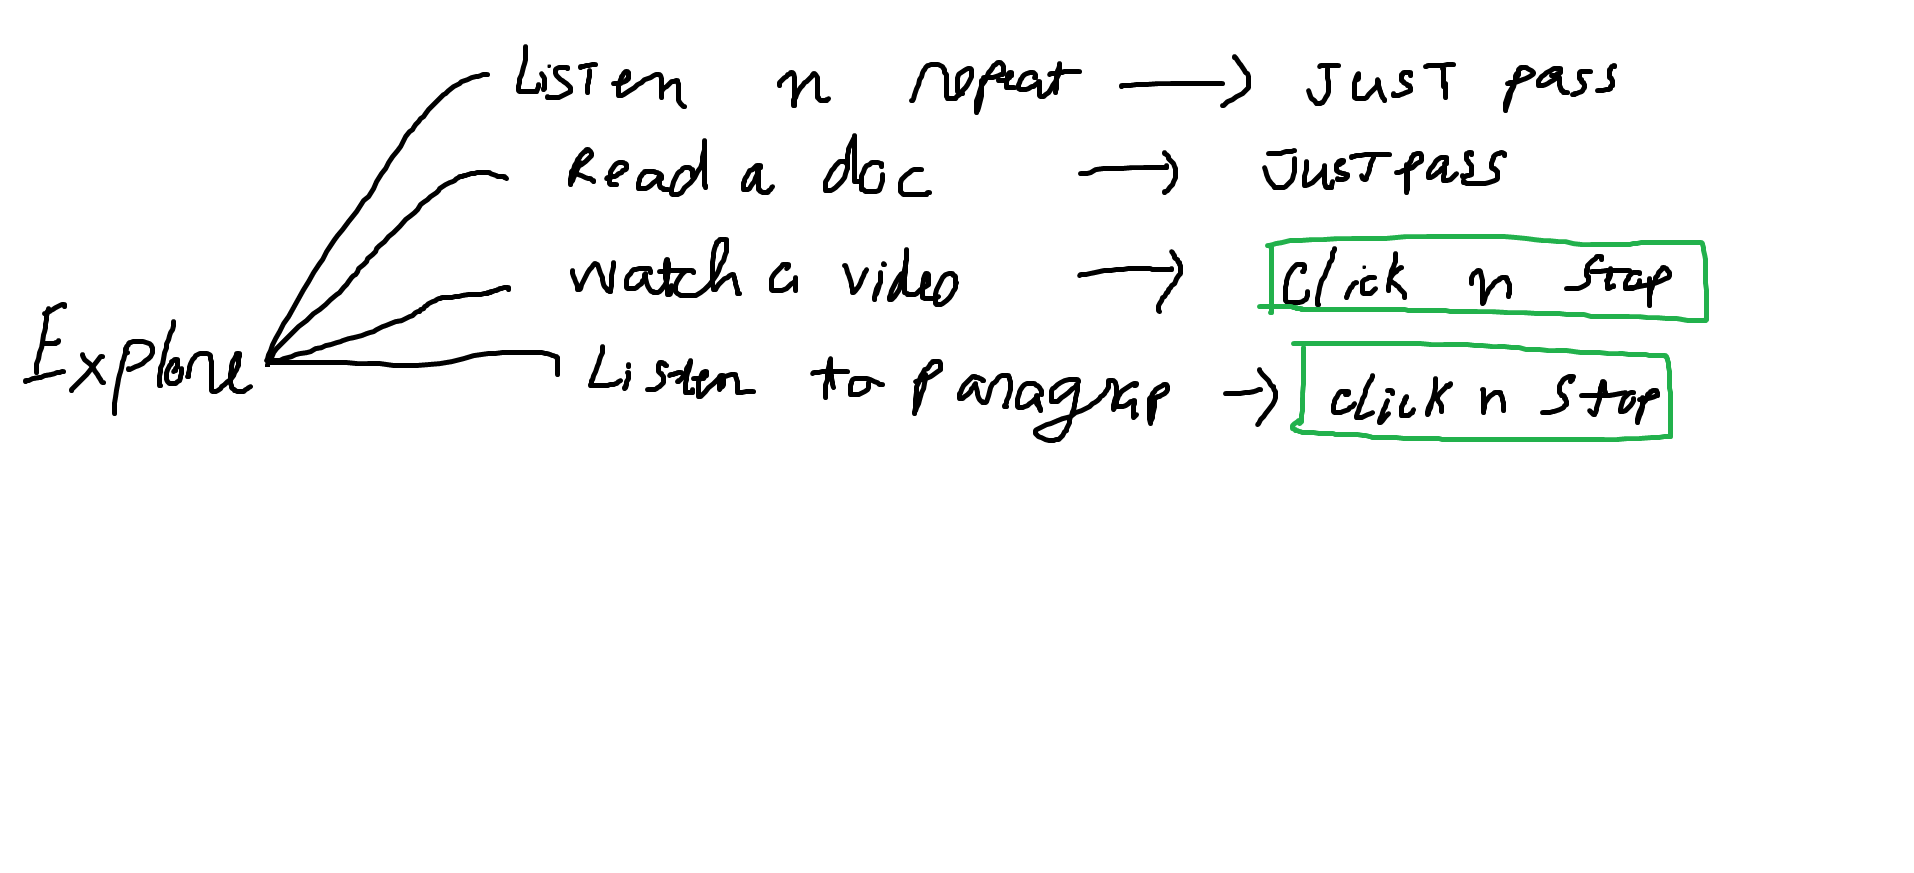 Listen n repeat → Just pass
Read a doc → Just pass
watch a video → Click n Stop
Explore
Listen to paragrap → click n Stop